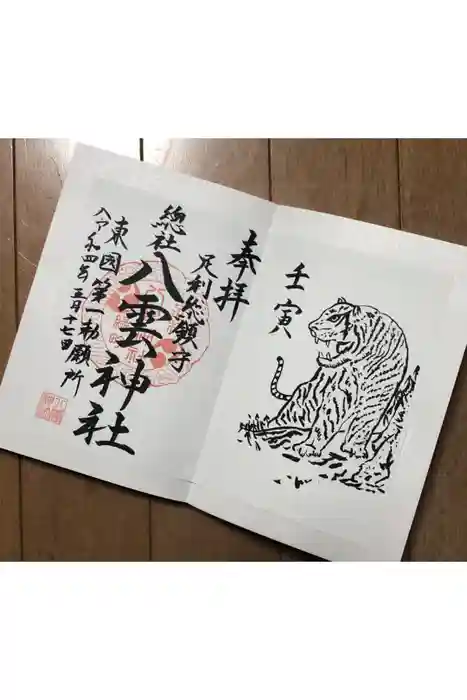 壬寅
奉拝
足利総鎮守
総社
八雲神社
東國第一勅願所
令和四年五月十七日